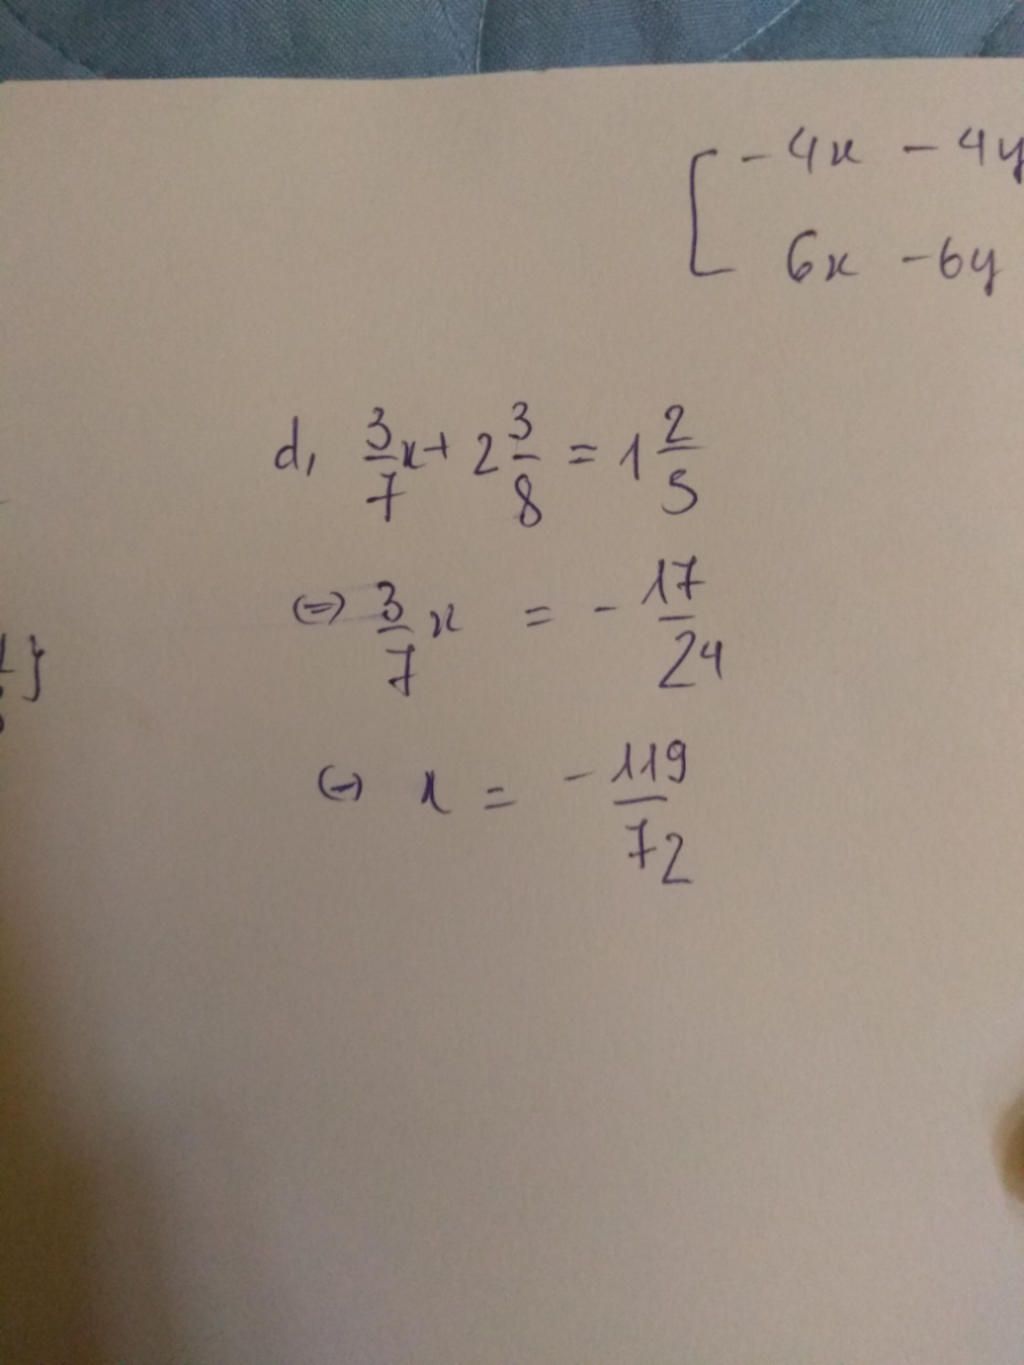 -4x - 4y
6x - 6y
d, 3/7 x + 2 3/8 = 1 2/5
(=) 3/7 x = - 17/24
(=) x = - 119/72
}